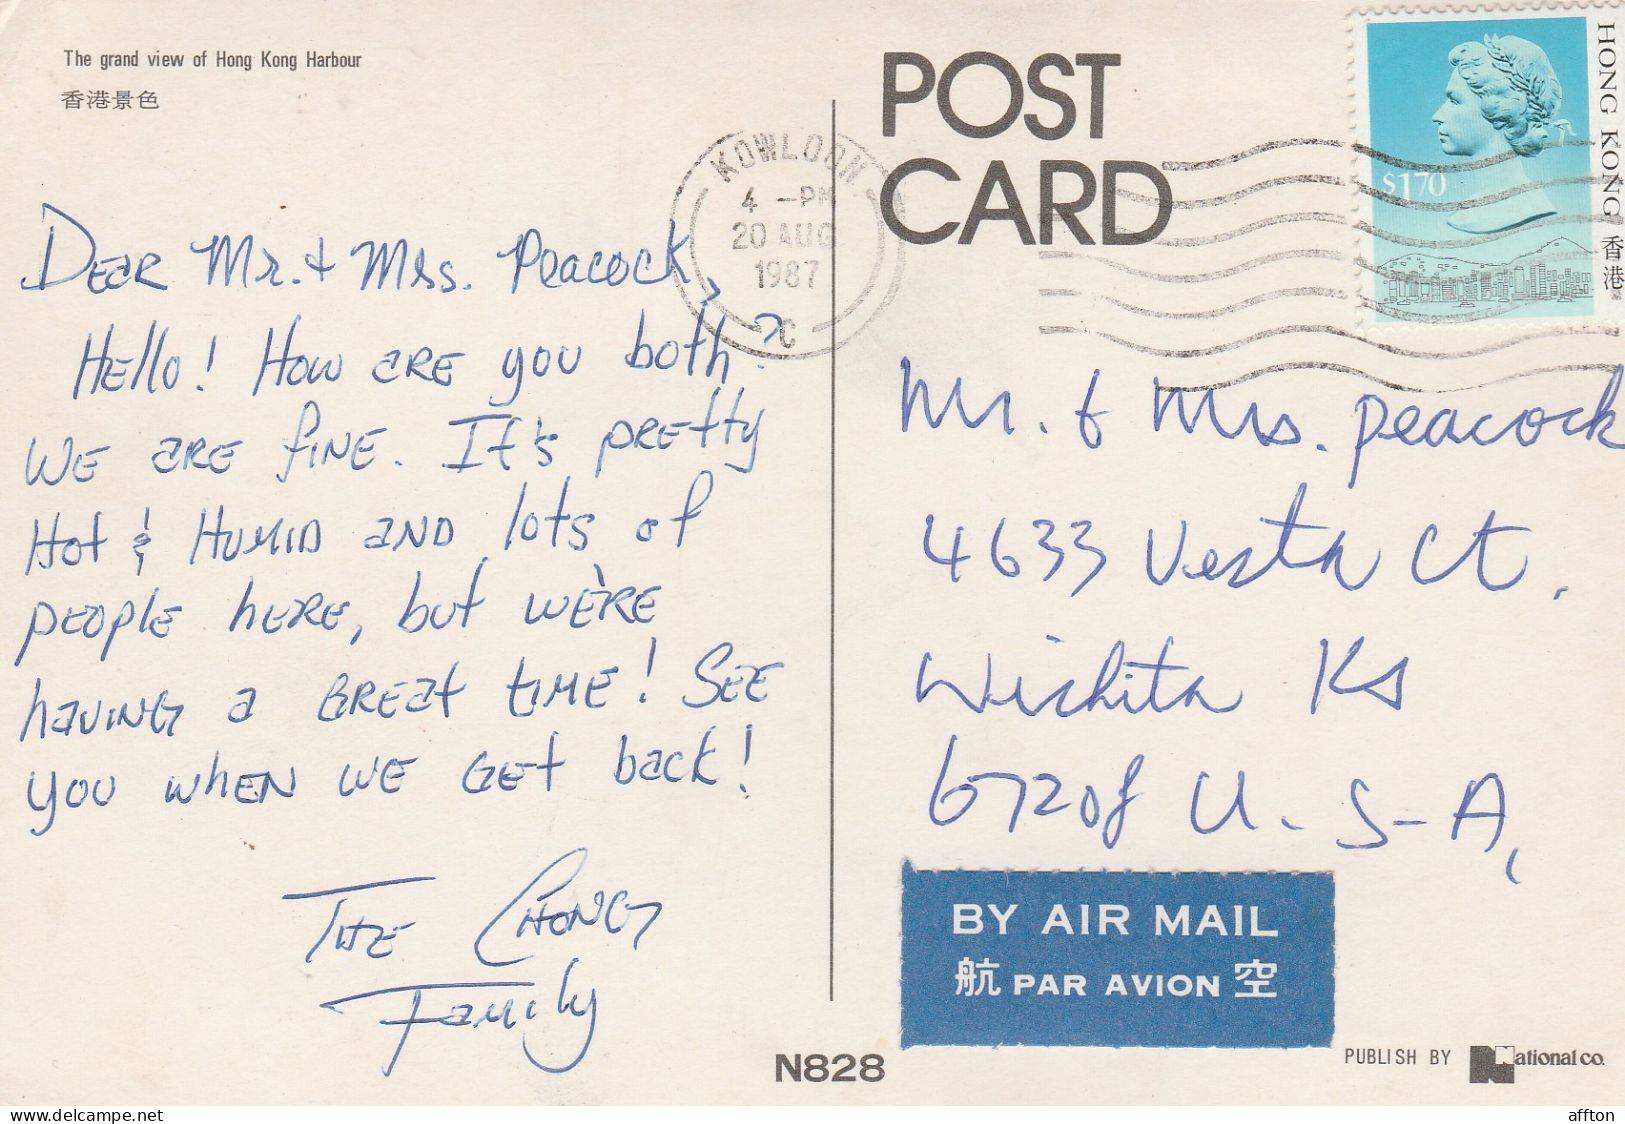 The grand view of Hong Kong Harbour
香港景色
POST
CARD
KOWLOON
4 -PM
20 AUG
1987
C
HONG KONG 香港
$1.70
Dear Mr. & Mrs. Peacock,
Hello! How are you both?
We are fine. It's pretty
Hot & Humid and lots of
people here, but we're
having a great time! See
you when we get back!
The Chong
Family
Mr. & Mrs. Peacock
4633 Vesta Ct.
Wichita Ks
67208 U.S-A,
BY AIR MAIL
航 PAR AVION 空
N828
PUBLISH BY National co.
www.delcampe.net
affton